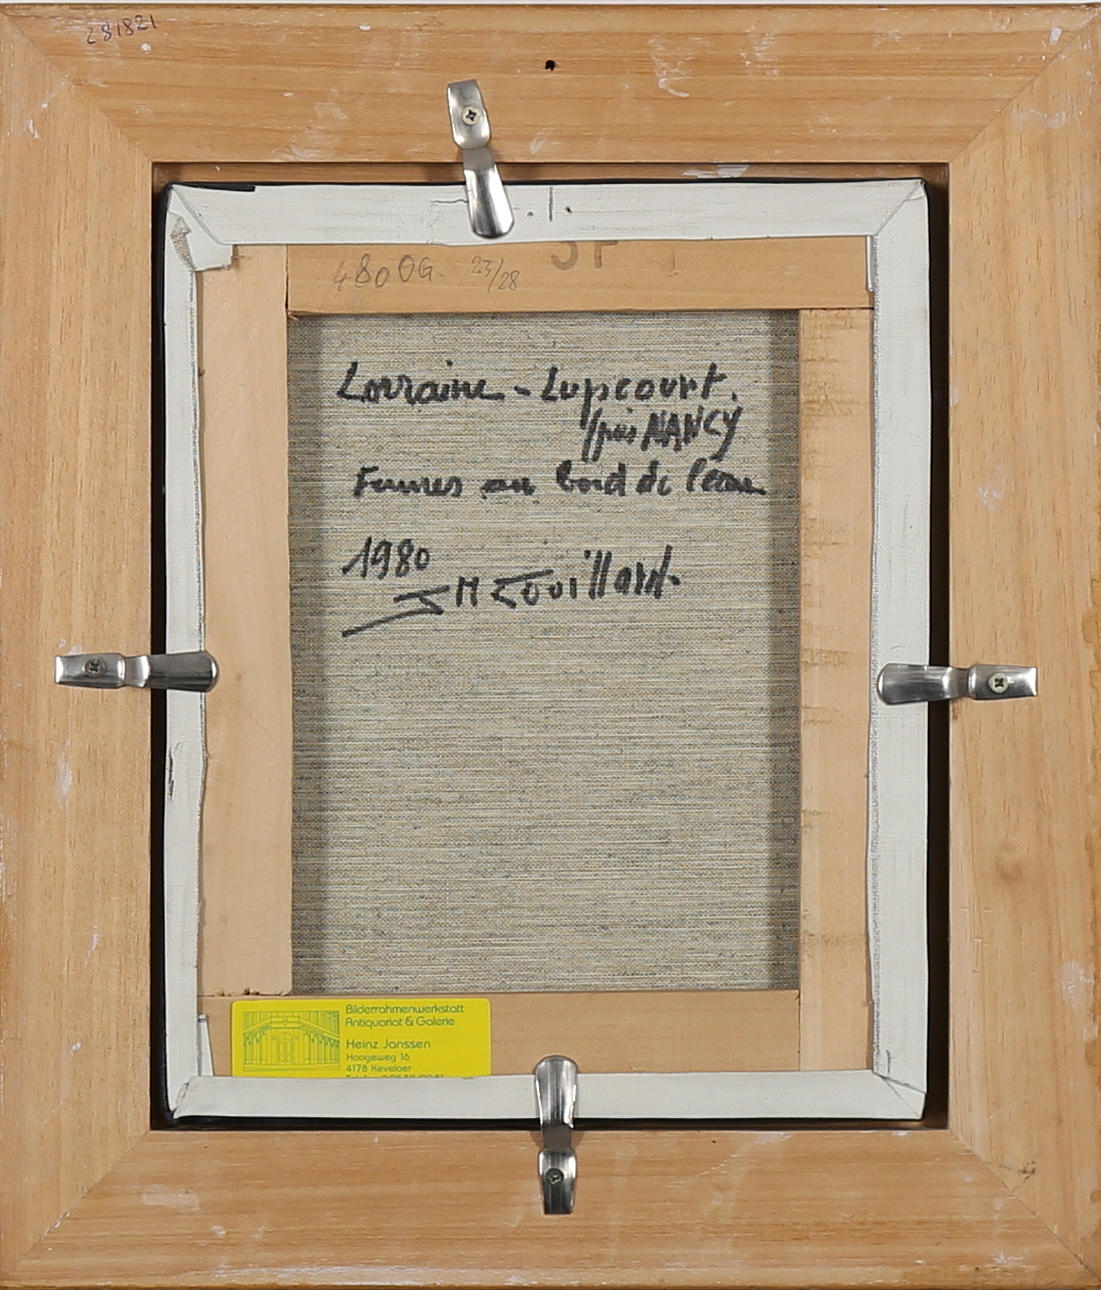 281821
4800G. 23/28
3F
Lorraine - Lupcourt.
près NANCY
Femmes au bord de l'eau
1980
Bilderrahmenwerkstatt
Antiquariat & Galerie
Heinz Janssen
Hoogeweg 16
4178 Kevelaer